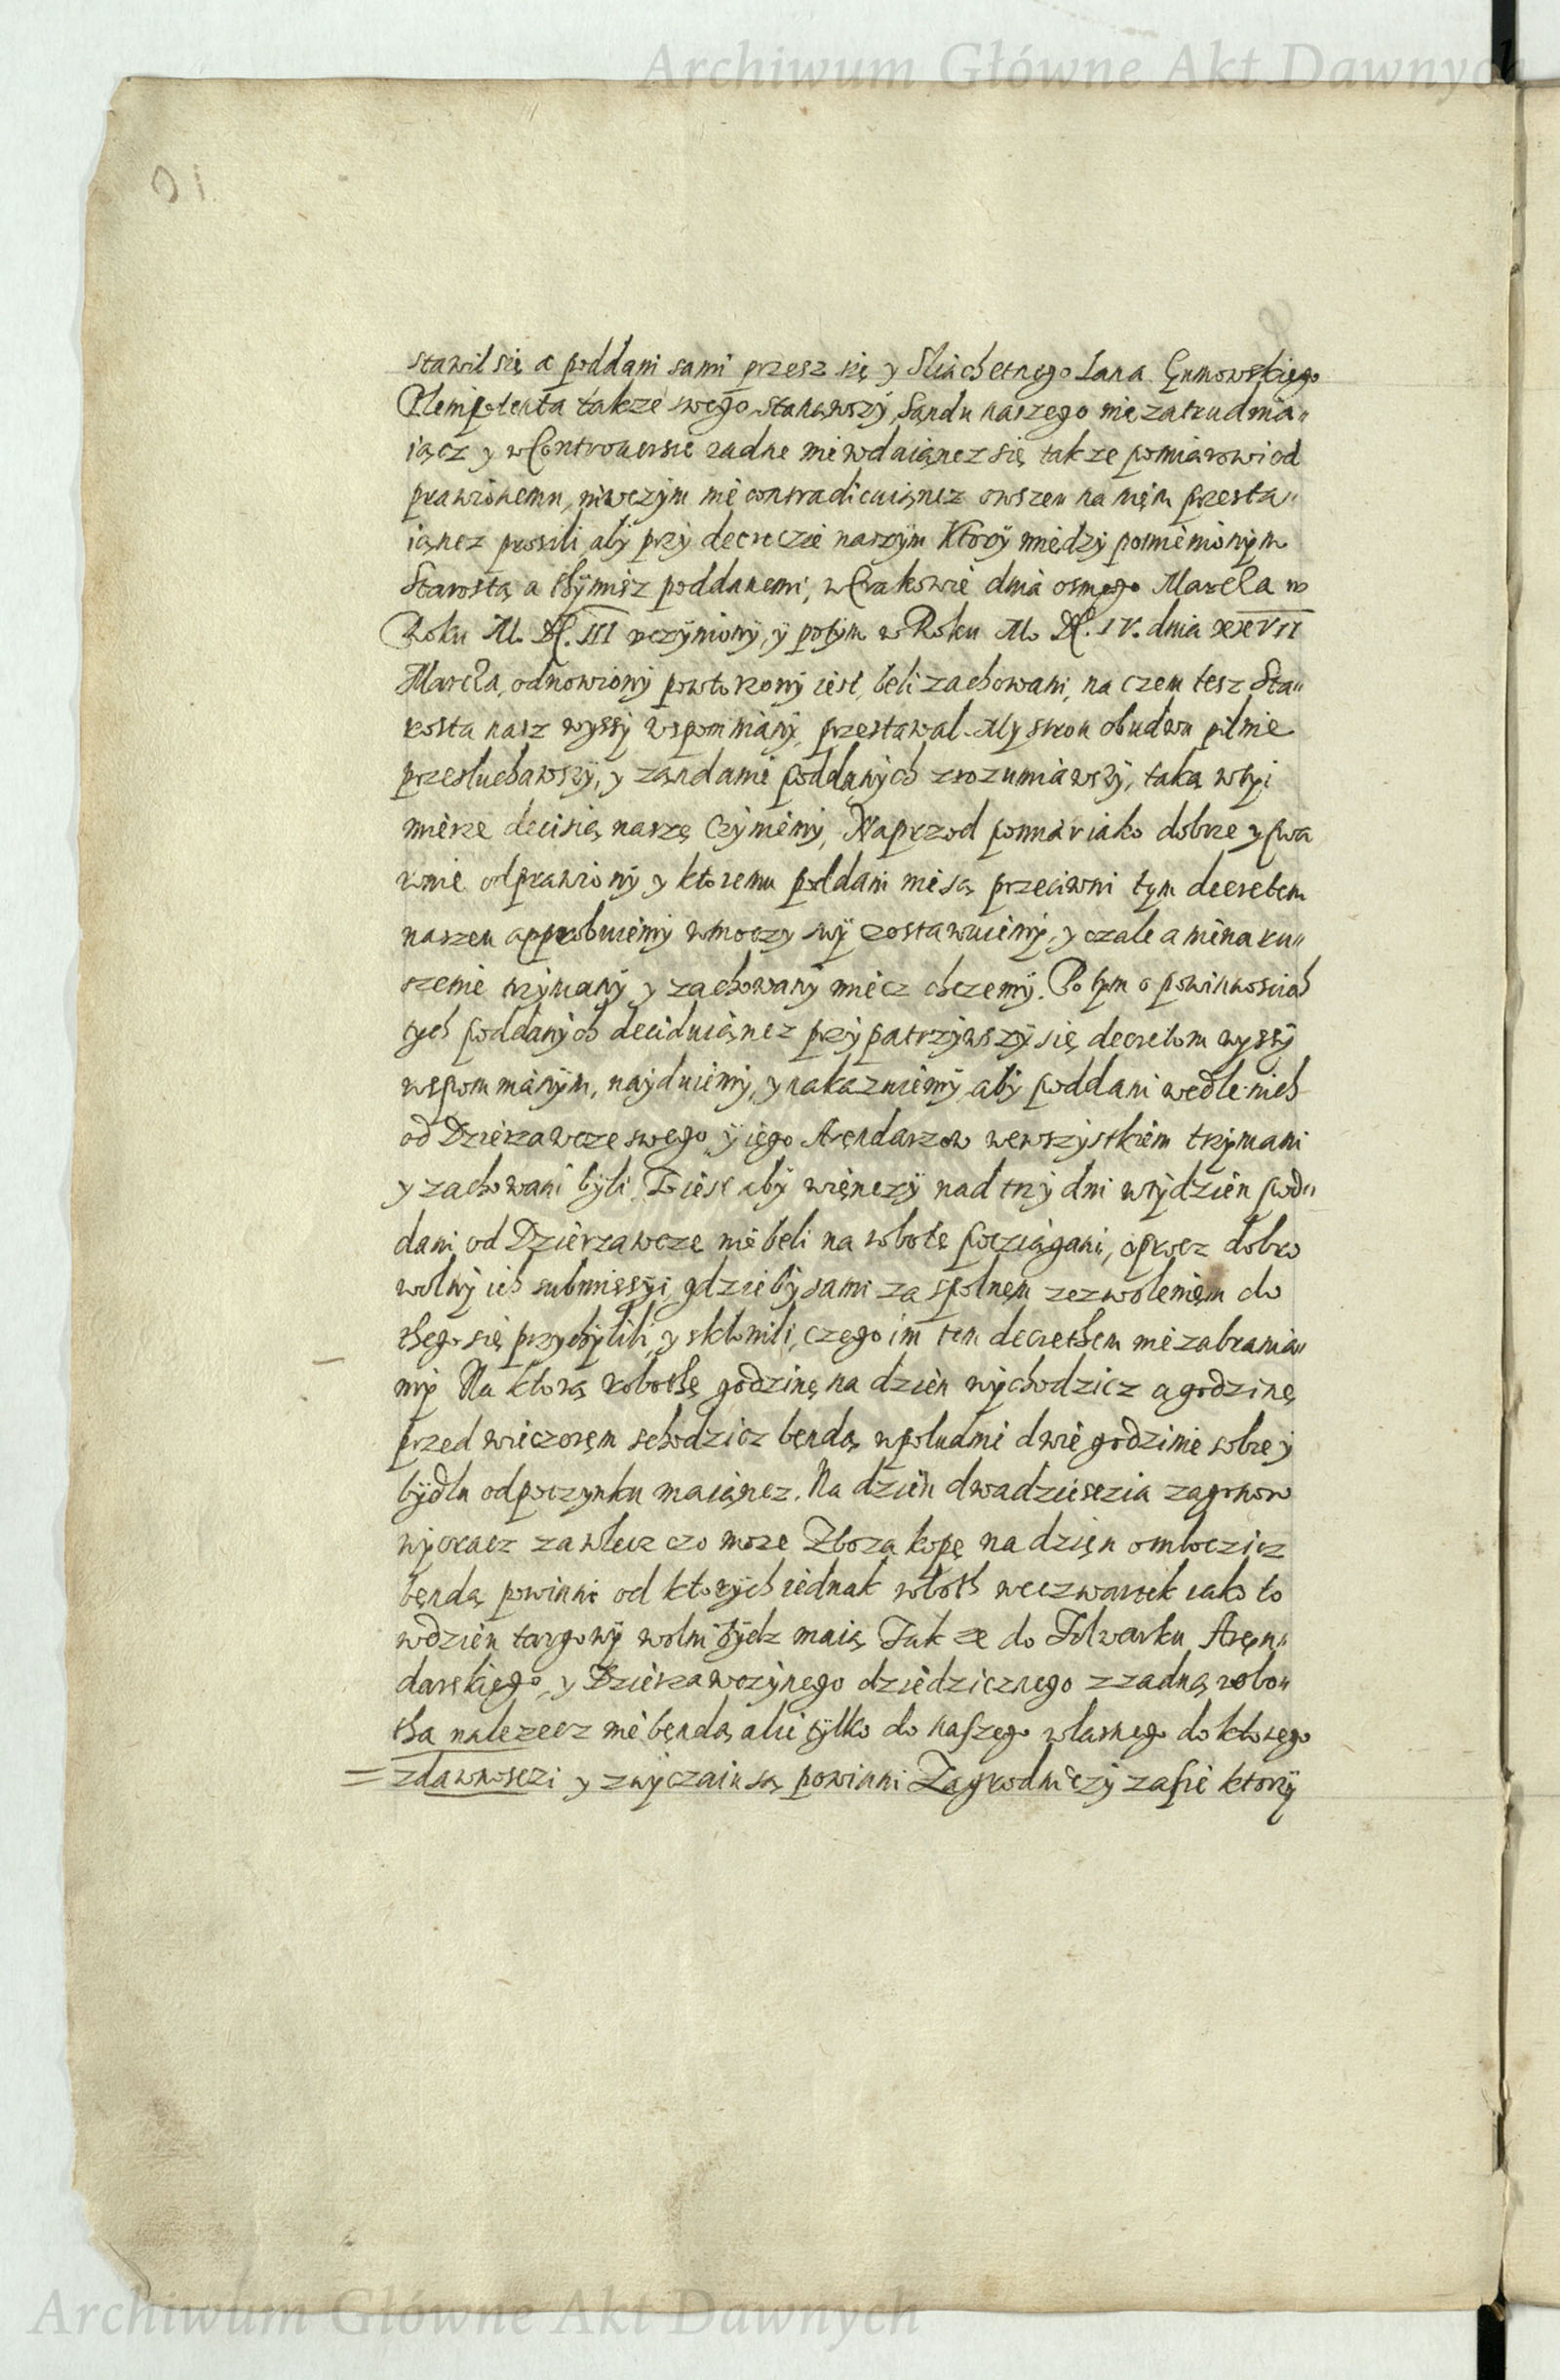 Archiwum Główne Akt Dawnych
stawil się a poddani sami przesz się y Sliachetnego Iana Gumowskiego
Plenipotenta takze swego stanąwszy, Sąndu naszego nie zatrudnia„
iącz y w Controuersie zadne nie wdaiąncz się takze pomiarowi od
prawionemu, niwczym nie contradicuiąncz owszem na nięm przesta„
iąncz prosili, aby przy decreczie naszym Ktory miedzy pomienionym
Starostą a thymisz poddanemi, w Crakowie dnia osmego Marca w
Roku M. DC. III vczyniony, y potym w Roku M. DC. IV. dnia XXVII
Marca, odnowiony powtorzony iest, beli zachowani, na czem tesz Sta„
rosta nasz wyssy wspomniany, przestawal. My stron obudwu pilnie
przesluchawszy, y ząndami poddanych zrozumiawszy, taką w tyi
mierze decisią naszę Czyniemy, Naprzod pomiar iako dobrze y spra
wnie odprawiony y ktoremu poddani nie są przeciwni tym decretem
naszem approbuiemy w moczy swy zostawuiemy, y czale a nienaru„
szenie trzymany y zachowany miecz chczemy. Po tym o powinnosciach
tych poddanych deciduiąncz przypatrzywszy się decretom wyssy
wspomnianym, nayduiemy, y nakazuiemy aby poddani wedle nich
od Dzierzawcze swego y iego Arendarzow we wszystkiem trzymani
y zachowani byli, To iest aby więnczy nad trzy dni w tydzien pod„
dani od Dzierzawcze nie beli na robotę pocziągani, oprocz dobro
wolny ich submissyi, gdzieby sami za spolnęm zezwolenięm do
thego się przychylili, y sklonili, czego im tem decrethem nie zabrania„
my Na ktorą robothę godzinę na dzien wychodzicz a godzinę
przed wieczoręm schodzicz będą, w poludnie dwie godzinie sobie y
bydlu odpoczynku maiąncz. Na dzien dwadziesczia zagonow
wyoracz zawlecz czo moze Zboza kopę na dzięn omloczicz
będą powinni od ktorych iednak roboth we czwartek iako to
w dzien targowy wolni bydz maią Takze do Folwarku Aręn„
darskiego, y Dzierzawczynego dziedzicznego z zadną robo„
thą nalezecz nie będą, ale tylko do naszego wlasnego do ktorego
zdawnosczi y zwyczaiu są powinni Zagrodniczy zasie ktorzy
Archiwum Główne Akt Dawnych